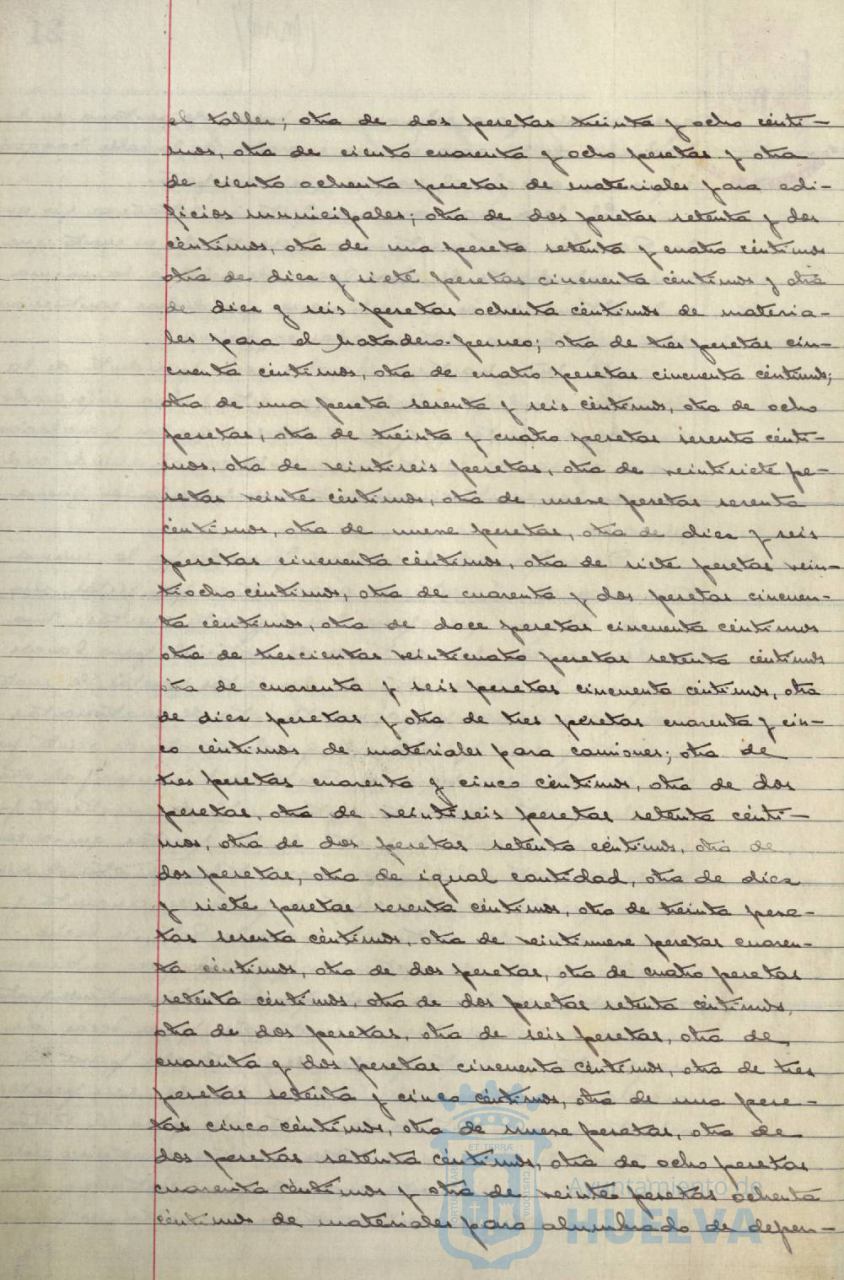 el taller; otra de dos pesetas treinta y ocho cénti-
mos, otra de ciento cuarenta y ocho pesetas y otra
de ciento ochenta pesetas de materiales para edi-
ficios municipales; otra de dos pesetas setenta y dos
céntimos, otra de una peseta setenta y cuatro céntimos
otra de diez y siete pesetas cincuenta céntimos y otra
de diez y seis pesetas ochenta céntimos de materia-
les para el Matadero-perneo; otra de tres pesetas cin-
cuenta céntimos, otra de cuatro pesetas cincuenta céntimos;
otra de una peseta sesenta y seis céntimos, otra de ocho
pesetas, otra de treinta y cuatro pesetas sesenta cénti-
mos, otra de veintiseis pesetas, otra de veintisiete pe-
setas veinte céntimos, otra de nueve pesetas sesenta
céntimos, otra de nueve pesetas, otra de diez y seis
pesetas cincuenta céntimos, otra de siete pesetas vein-
tiocho céntimos, otra de cuarenta y dos pesetas cincuen-
ta céntimos, otra de doce pesetas cincuenta céntimos
otra de trescientas veinticuatro pesetas setenta céntimos
otra de cuarenta y seis pesetas cincuenta céntimos, otra
de diez pesetas y otra de tres pesetas cuarenta y cin-
co céntimos de materiales para camiones; otra de
tres pesetas cuarenta y cinco céntimos, otra de dos
pesetas, otra de veintiseis pesetas setenta cénti-
mos, otra de dos pesetas setenta céntimos, otra de
dos pesetas, otra de igual cantidad, otra de diez
y siete pesetas sesenta céntimos, otra de treinta pese-
tas sesenta céntimos, otra de veintinueve pesetas cuaren-
ta céntimos, otra de dos pesetas, otra de cuatro pesetas
setenta céntimos, otra de dos pesetas setenta céntimos,
otra de dos pesetas, otra de seis pesetas, otra de
cuarenta y dos pesetas cincuenta céntimos, otra de tres
pesetas setenta y cinco céntimos, otra de una pese-
tas cinco céntimos, otra de nueve pesetas, otra de
dos pesetas setenta céntimos, otra de ocho pesetas
cuarenta céntimos y otra de veinte pesetas ochenta
céntimos de materiales para alumbrado de depen-
Ayuntamiento de
HUELVA